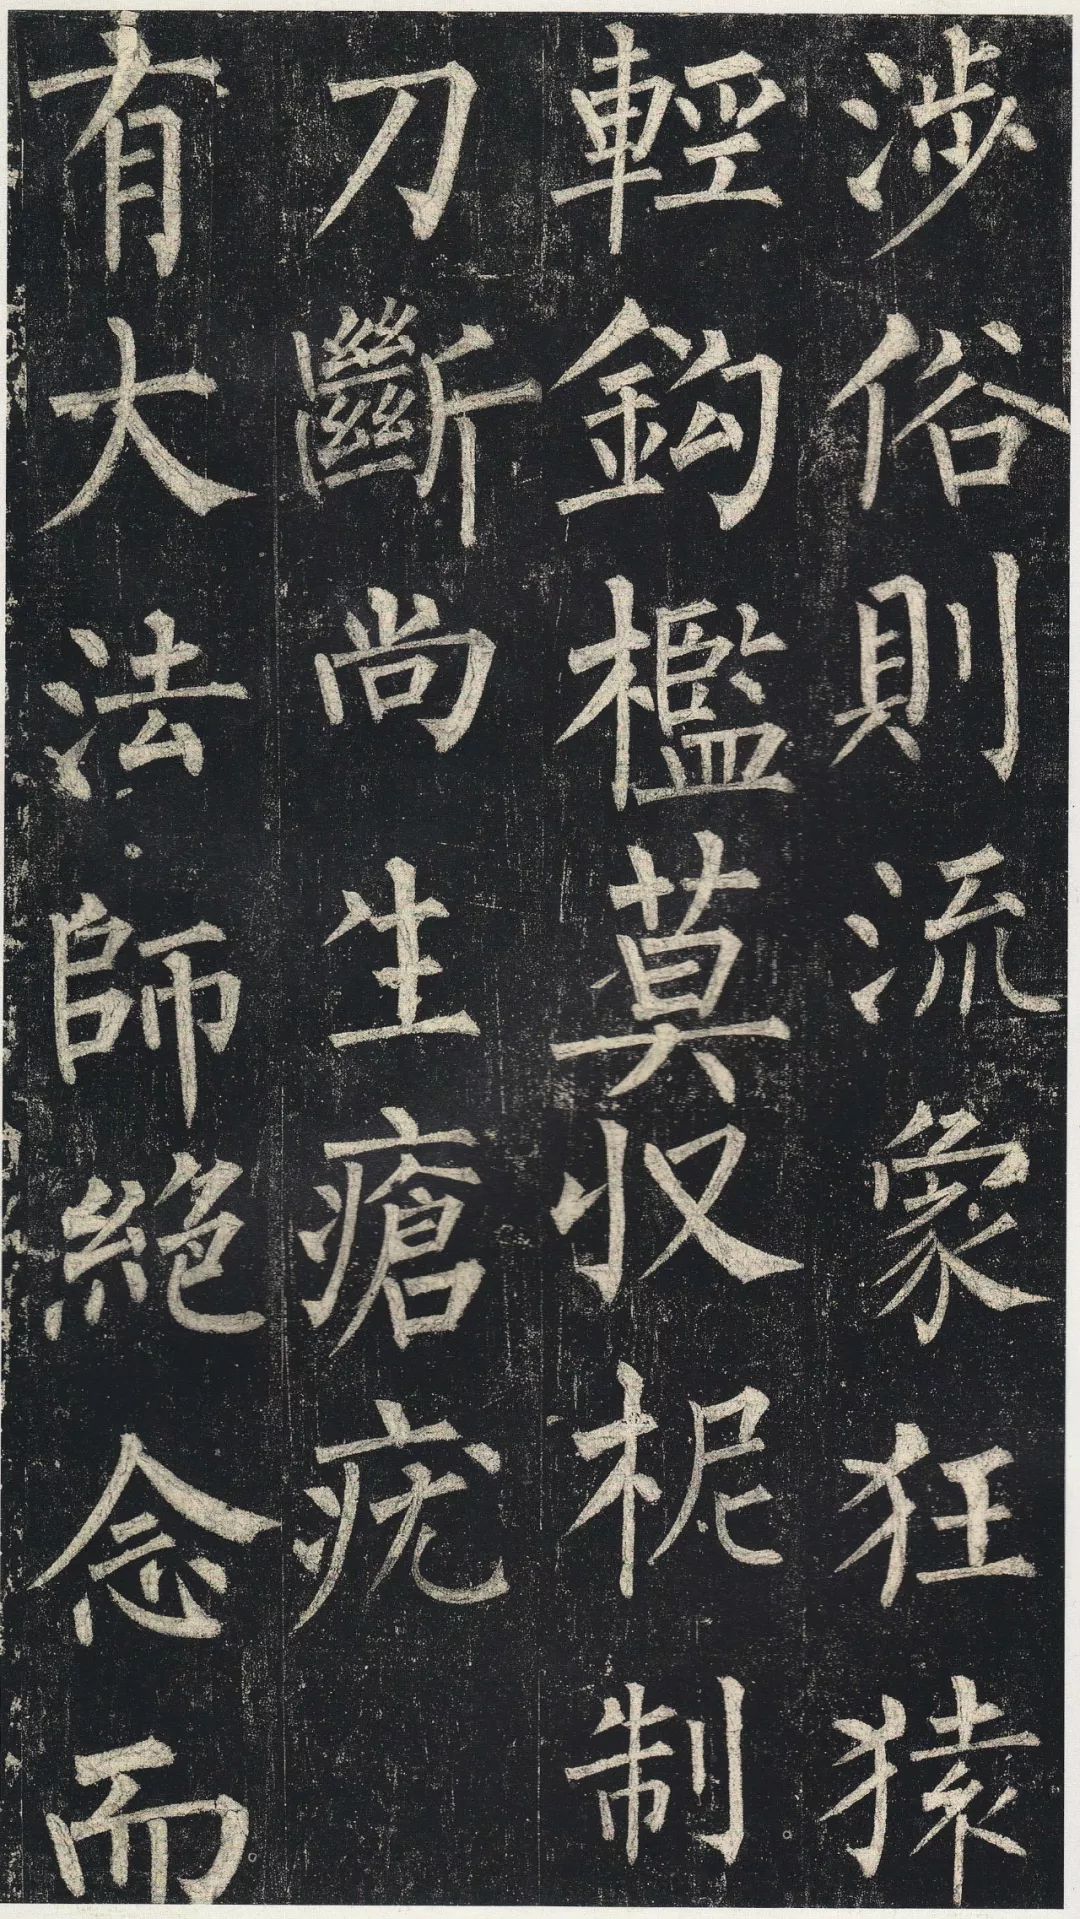 涉俗則流象狂猿
輕鈎檻莫収柅制
刀斷尚生瘡疣
有大法師絶念而